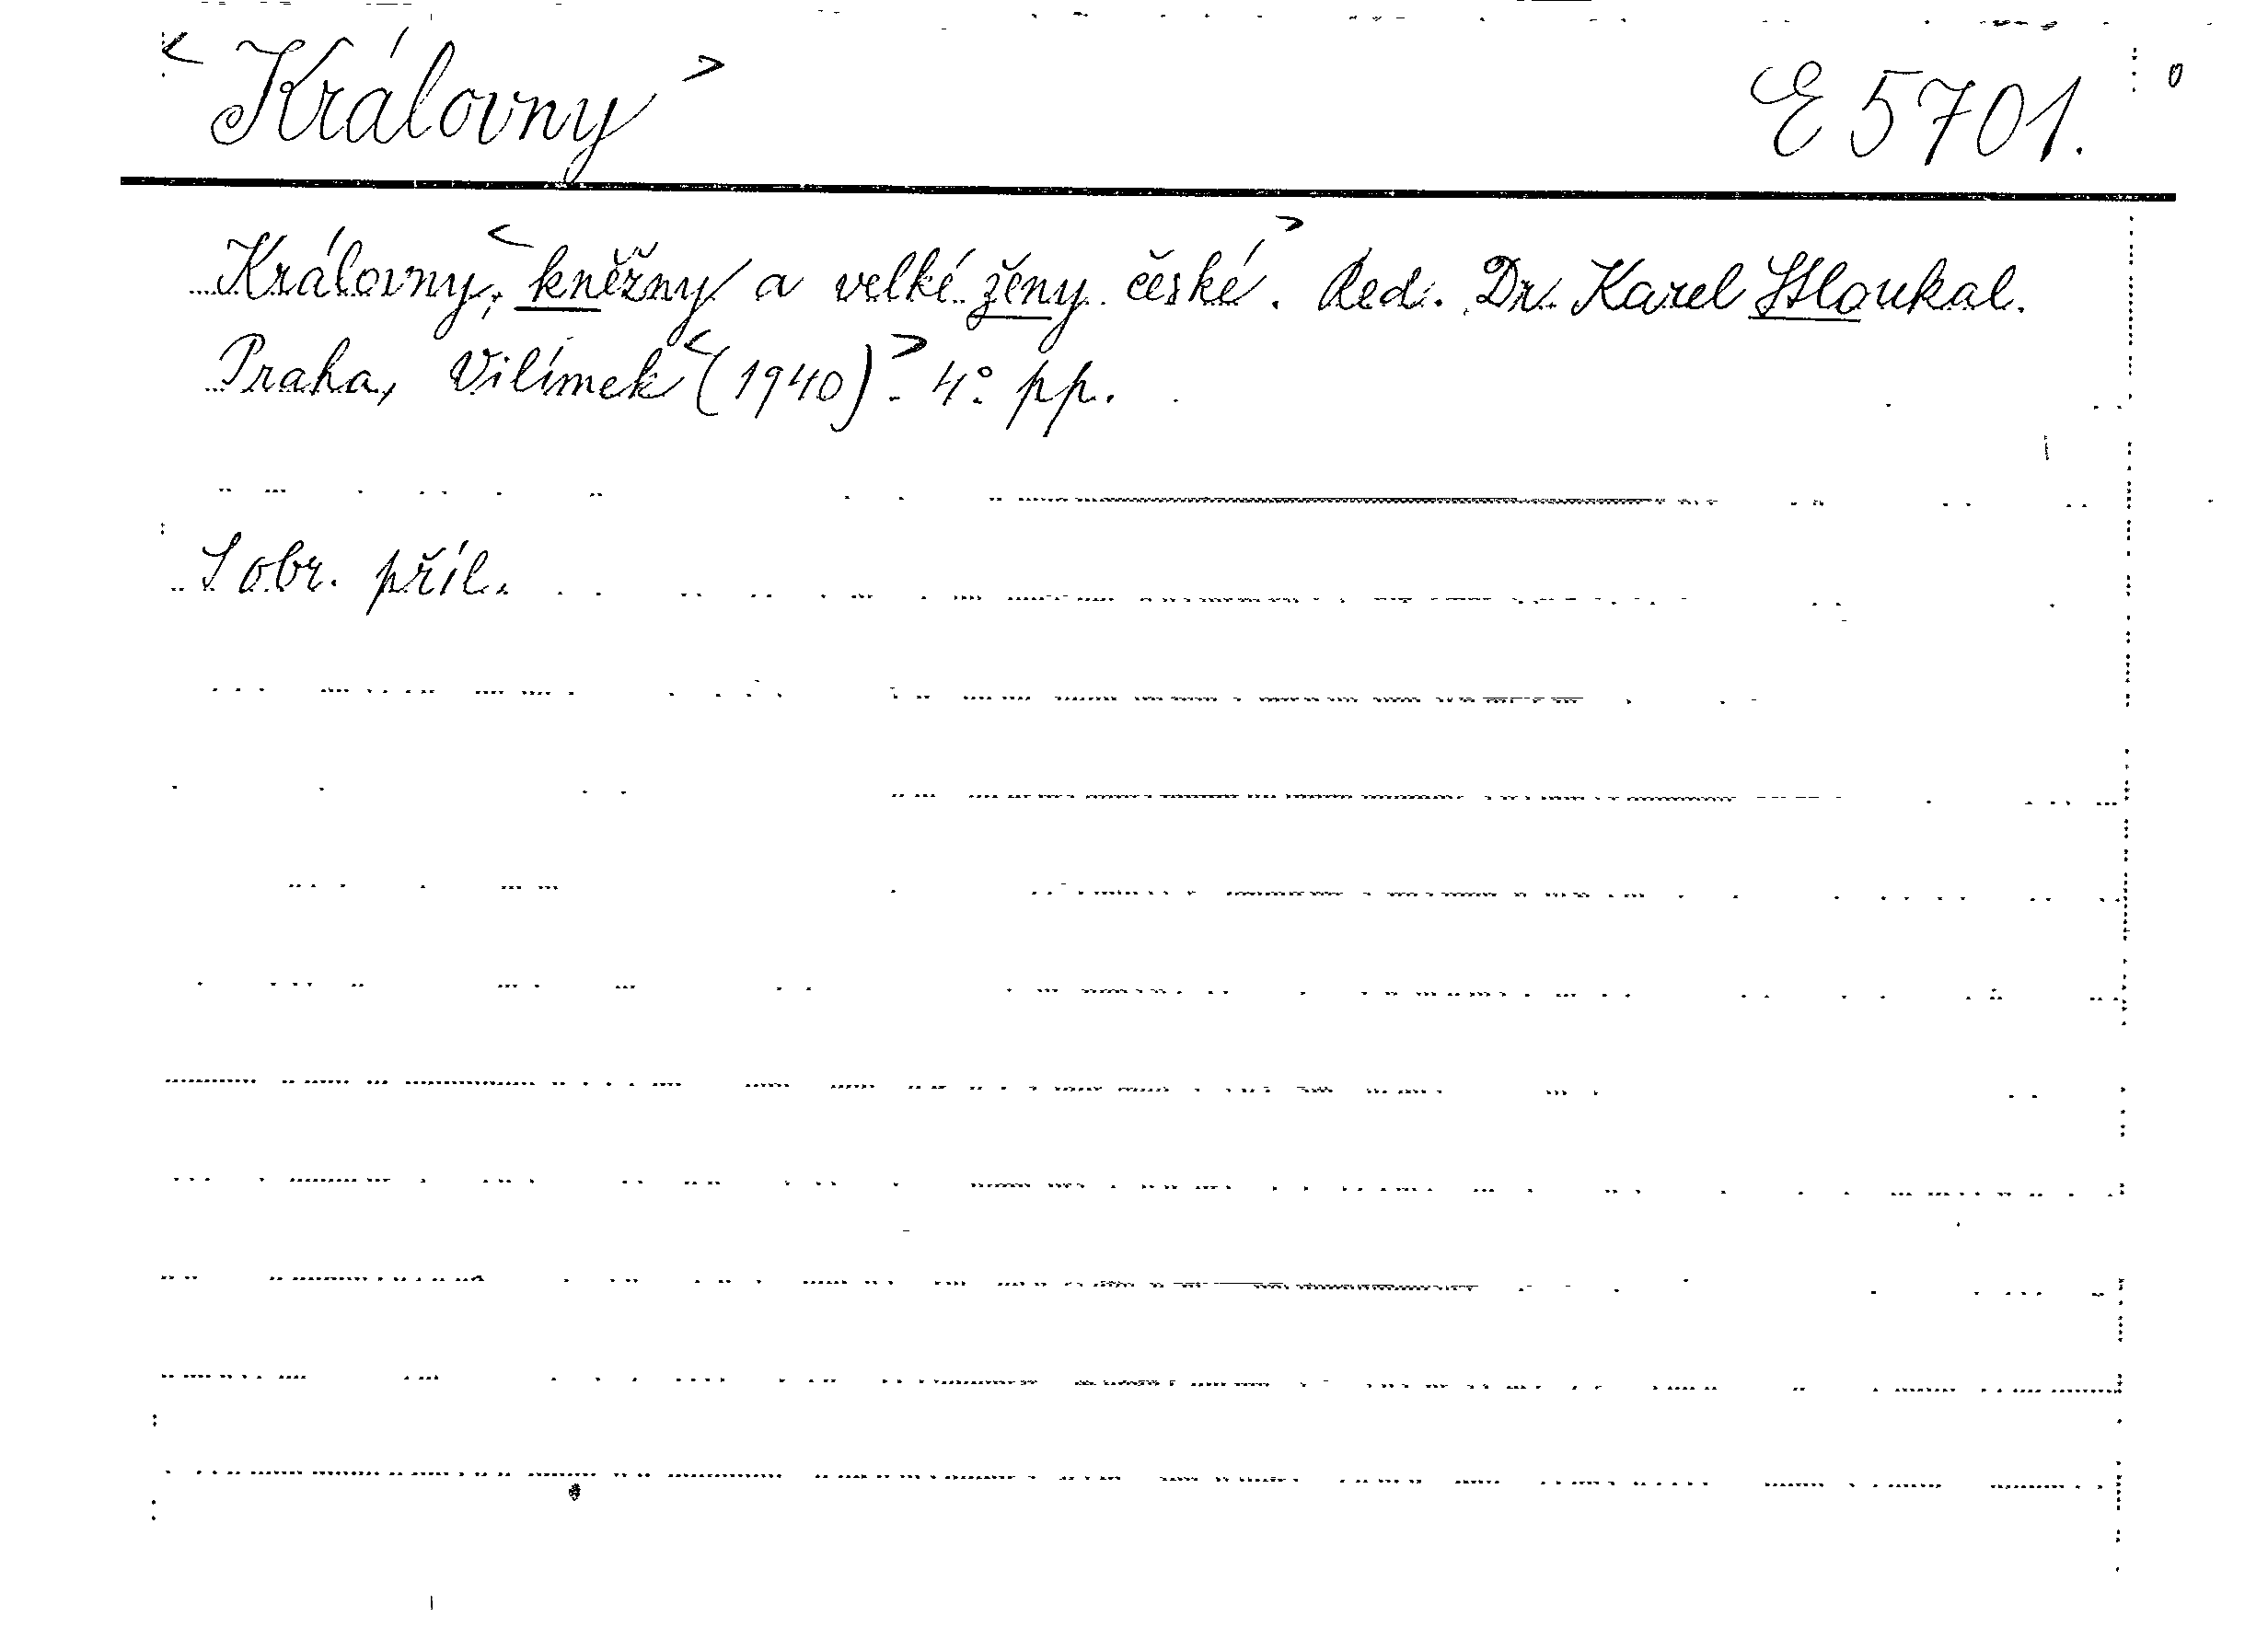 < Královny > E 5701.
Královny, < kněžny a velké ženy české. > Red. Dr. Karel Stloukal.
Praha, Vilímek < (1940). > 4° pp.
S obr. příl.